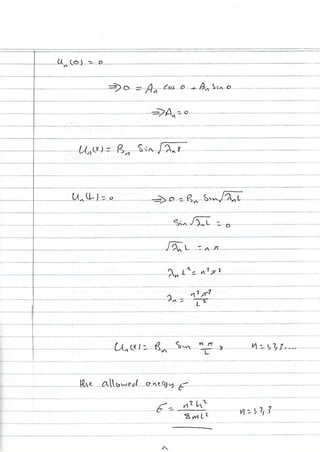 Uₙ(0) = 0
⇒ 0 = Aₙ cos 0 + Bₙ Sin 0
⇒ Aₙ = 0
Uₙ(x) = Bₙ Sin √λₙ x
Uₙ(L) = 0 ⇒ 0 = Bₙ Sin √λₙ L
Sin √λₙ L = 0
√λₙ L = n π
λₙ L² = n² π²
λₙ = n² π² / L²
Uₙ(x) = Bₙ Sin n π / L x n = 1, 2, 3....
the allowed energys E
E = n² h² / 8 m L² n = 1, 2, 3